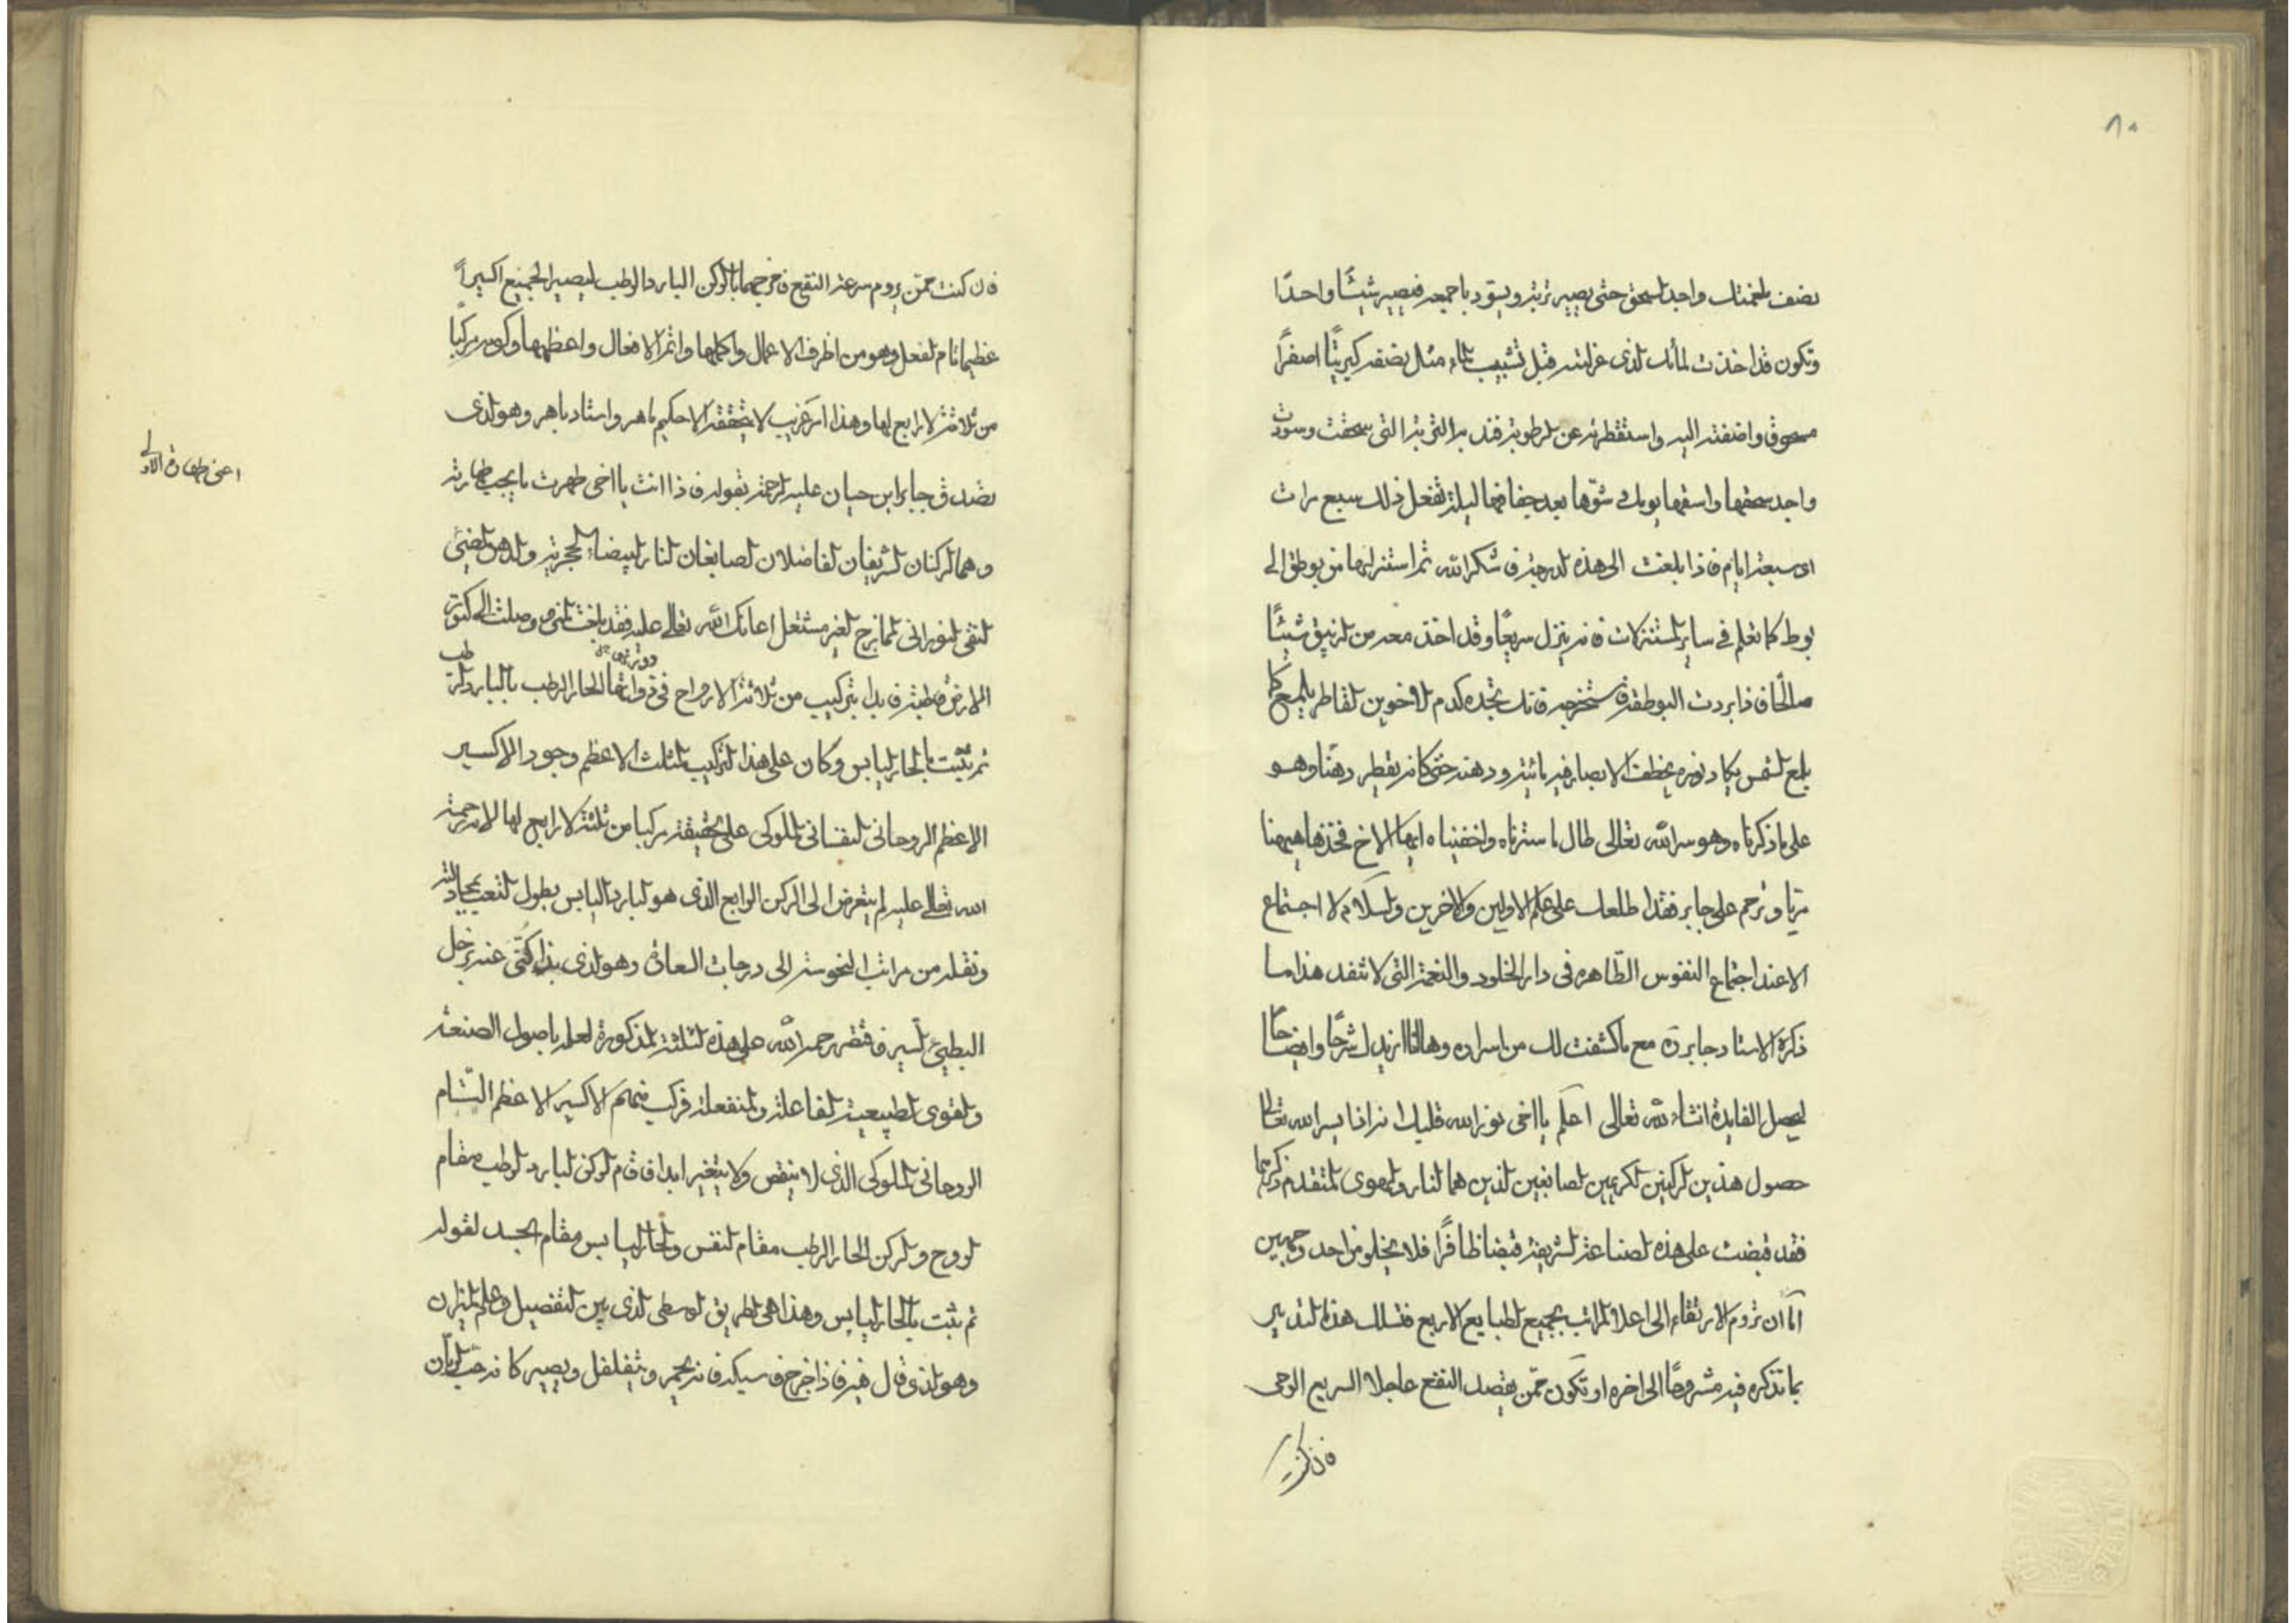 ٨٠
نصف بلغمتك واحد لسحق حتى يصير تربة ويسود باجمعه فيصير شيئًا واحدًا
وتكون قد اخذت لمائك لذى عزلته قبل تشبيب بماء مثل نصفه كبريتًا اصفرًا
مسحوق واضفته اليه واستقطرته عن لرطوبة فند بها التربة التى سحقت وسودت
واجد سحقها واسقها يومك وشوّها بعد جفافها ليلة تفعل ذلك سبع مرات
اى سبعة ايام فاذا بلغت الى هذه لدرجة فاشكر الله ثم استنزلها من بوطق الى
بوط كما تعلم فى ساير لمستنزلات فانه ينزل سريعًا وقد اخذ معه من لزيبق شيئًا
صالحًا فاذا بردت البوطقة فاستخرجه فانك تجده كدم لاخوين لقاطر يلمع كما
يلمع لشمس يكاد نوره يخطف الابصار فيه مائيته ودهنه حتى كانه يقطر دهنًا وهو
على ما ذكرناه وهو سر الله تعالى طال ما سترناه واخفيناه ايها الاخ فخذها هيهنا
مريا وترحم على جابر فقد اطلعك على علم الاولين والاخرين ولسلام لا اجتماع
الا عند اجتماع النفوس الطّاهره فى دار الخلود والنعمة التى لا تنفد هذا ما
ذكره الاستاد جابر ره مع ما كشفت لك من اسراره وها انا ازيدك شرحًا وايضاحًا
ليحصل الفايدة انشاء لله تعالى اعلم يا اخى نور الله قلبك انه اذا يسر الله تعالى
حصول هذين لركنين لكريمين لصابغين لذين هما لنار ولهوى لمتقدم ذكرهما
فقد قبضت على هذه لصناعة لشريفة قبضا ظافرًا فلا يخلو من احد وجهين
اما ان تروم الارتقاء الى اعلا لمراتب بجميع لطبايع الاربع فتسلك هذه لتدبير
بما تذكره فيه مشروحًا الى اخره او تكون ممّن يقصد النفع عاجلا السريع الوحى
فان كنت
فان كنت ممّن يروم سرعة النفع فامزجهما بالركن البارد الرطب ليصير الجميع اكسيرًا
عظيما تام لفعل وهو من اظرف الاعمال واكملها واتم الافعال واعظمها وكونه مركبًا
من ثلاثة لا رابع لها وهذا امر غريب لا يتحققه الا حكيم ماهر واستاد باهر وهو لذى
تصدق جابر ابن حيان عليه لرحمة بقوله فاذا انت يا اخى طهرت ما يجب طهارته
اعنى طهارة الاولى
وهما لركنان لشريفان لفاضلان لصابغان لنار لبيضاء لحجرية ولدهن لمضيئ
لنقى لنورانى لممازج لغير مشتعل اعانك الله تعالى عليه فقد بلغت لمنى ووصلت الى كنوز
الارض قاطبة فابدا بتركيب من ثلاثة الارواح فى ذواتها الحار الرطب بالبارد لرطب
ثم تثبت بالحار ليابس وكان على هذا لتركيب لمثلث الاعظم وجود الاكسير
الاعظم الروحانى لنفسانى لملوكى على لحقيقة مركبا من ثلثة لا رابع لها لانه رحمة
الله تعالى عليه لم يتعرض الى الركن الرابع الذى هو لبارد اليابس بطول لتعب
ونقله من مراتب النحوسة الى درجات السعادة وهو لذى بدا كنّى عنه بزحل
البطيئ لسير فاقتصر رحمه الله على هذه لثلثة لمذكورة لعلمه باصول الصنعة
ولقوى لطبيعية لفاعلة ولمنفعلة فركب منهم الاكسير الاعظم التّام
الروحانى لملوكى الذى لا ينقص ولا يتغير ابدا فاقام لركن لبارد لرطب مقام
لروح ولركن الحار الرطب مقام لنفس ولحار ليابس مقام الجسد لقوله
ثم تثبت بالحار ليابس وهذا هى لطريق لوسطى لذى بين لتفصيل وعلم لميزان
وهو لذى قال فيه فاذا خرج فاسبكه فانه يحمر ويتفلفل ويصير كانه حب لرمان